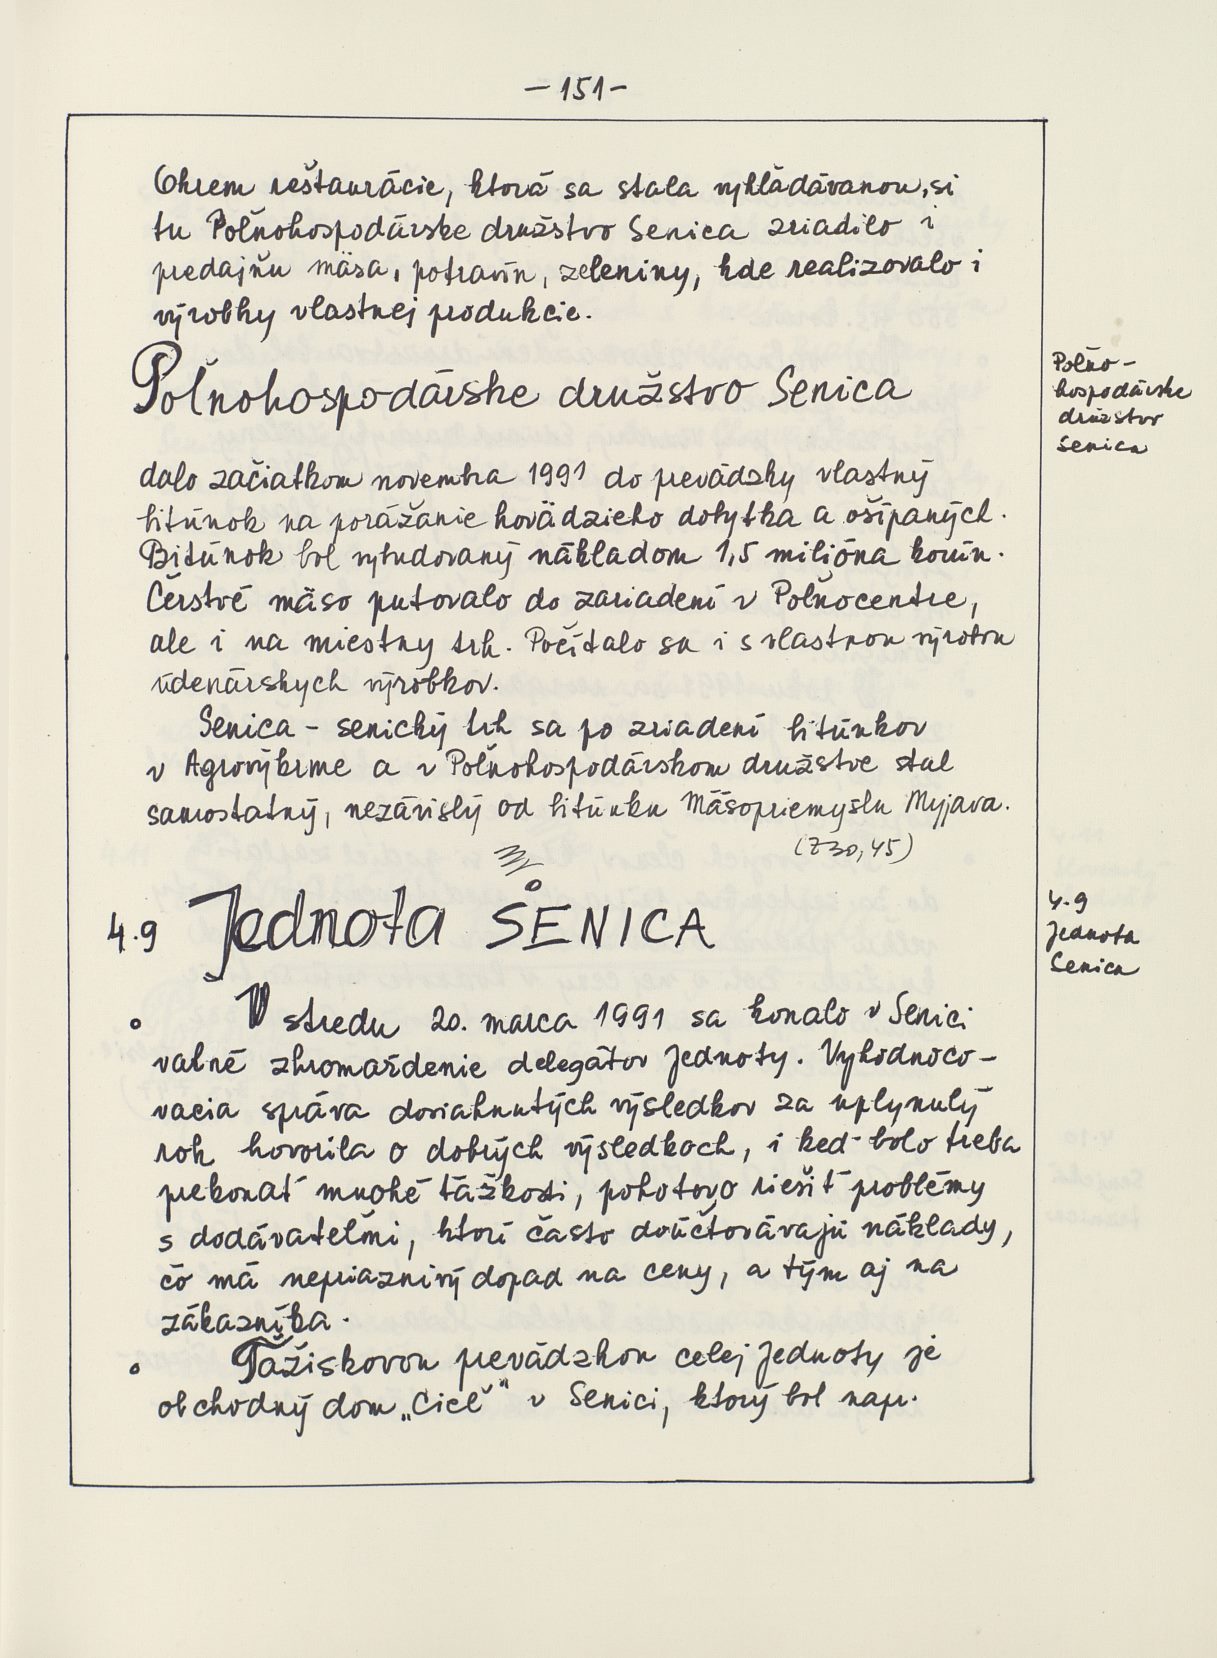 - 151 -
Okrem reštaurácie, ktorá sa stala vyhľadávanou, si
tu Poľnohospodárske družstvo Senica zriadilo i
predajňu mäsa, potravín, zeleniny, kde realizovalo i
výrobky vlastnej produkcie.
Poľnohospodárske družstvo Senica
Poľno-
hospodárske
družstvo
Senica
dalo začiatkom novembra 1991 do prevádzky vlastný
bitúnok na porážanie hovädzieho dobytka a ošípaných.
Bitúnok bol vybudovaný nákladom 1,5 milióna korún.
Čerstvé mäso putovalo do zariadení v Poľnocentre,
ale i na miestny trh. Počítalo sa i s vlastnou výrobou
údenárskych výrobkov.
Senica - senický trh sa po zriadení bitúnkov
v Agrovýkrme a v Poľnohospodárskom družstve stal
samostatný, nezávislý od bitúnku Mäsopriemyslu Myjava.
(Z30,45)
4.9 Jednota SENICA
4.9
Jednota
Senica
V stredu 20. marca 1991 sa konalo v Senici
valné zhromaždenie delegátov Jednoty. Vyhodnoco-
vacia správa dosiahnutých výsledkov za uplynulý
rok hovorila o dobrých výsledkoch, i keď bolo treba
prekonať mnohé ťažkosti, pohotovo riešiť problémy
s dodávateľmi, ktorí často doúčtovávajú náklady,
čo má nepriaznivý dopad na ceny, a tým aj na
zákazníka.
Ťažiskovou prevádzkou celej Jednoty je
obchodný dom „Cieľ" v Senici, ktorý bol napr.